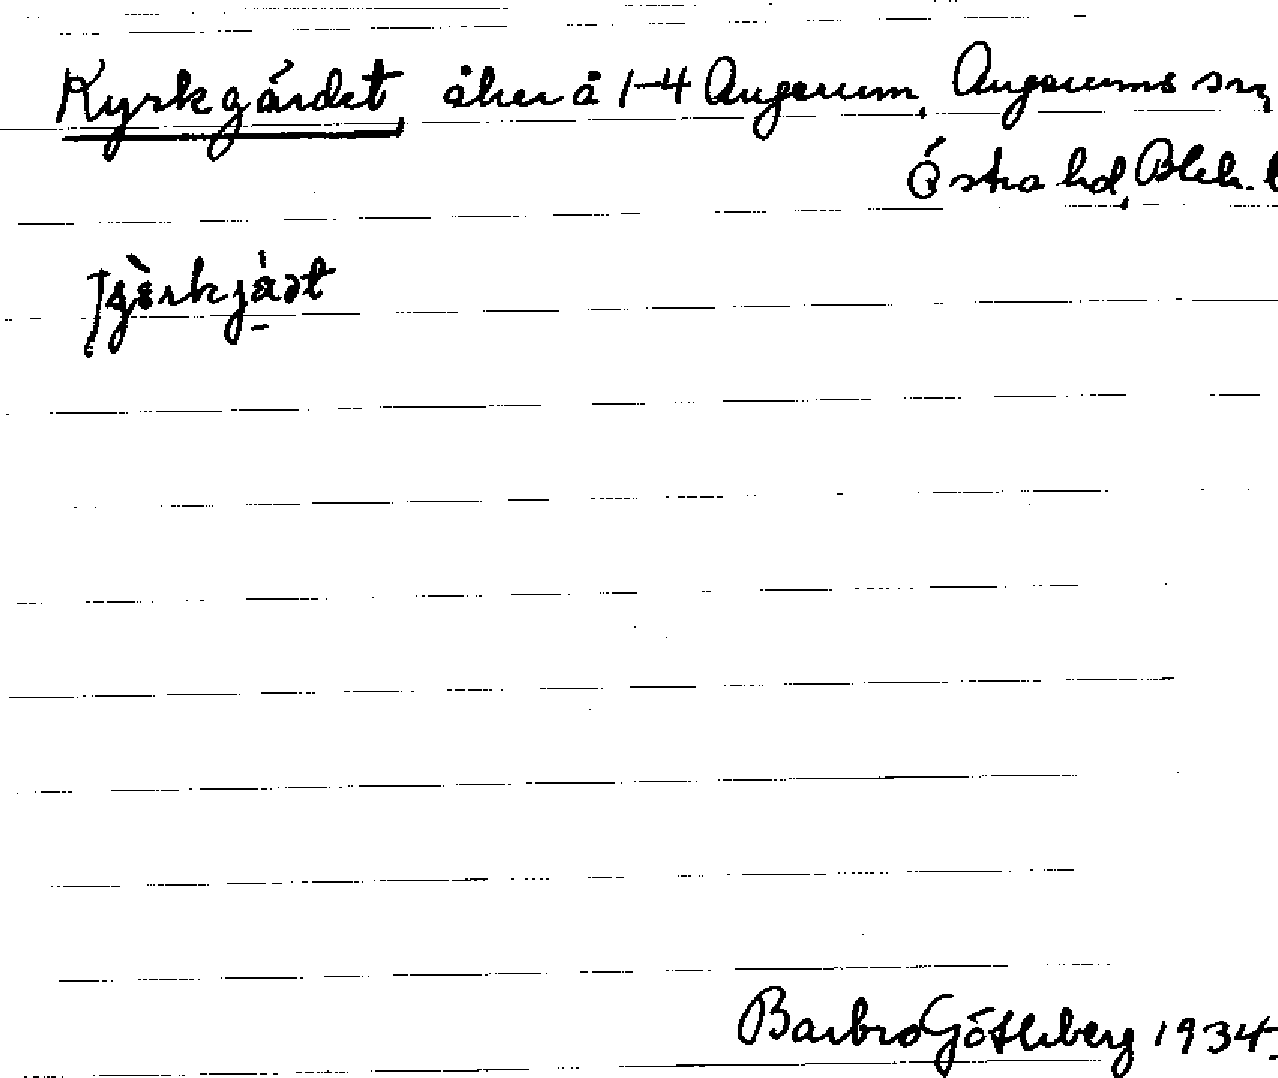 Kyrkgärdet, åker å 1-4 Augerum, Augerums sn,
Östra hd, Blek. l
Barbro Götleberg 1934.